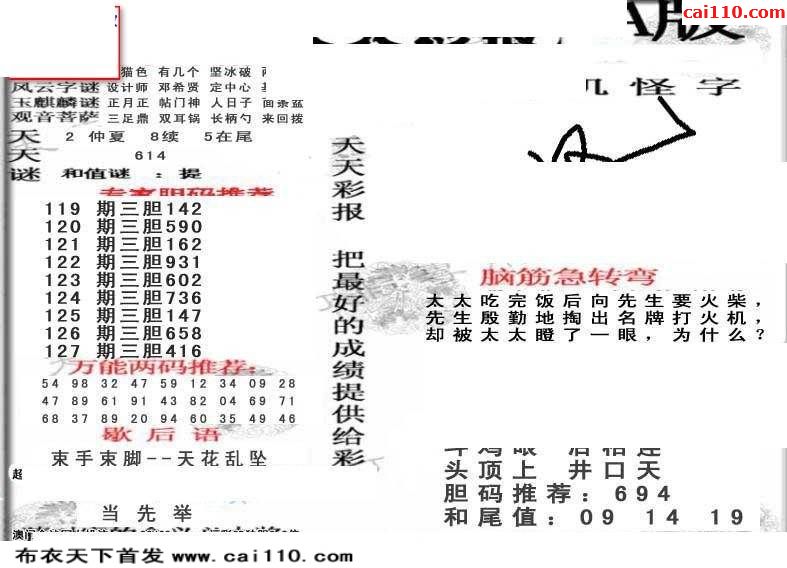 cai110.com
猫色 有几个 坚冰破
风云字谜 设计师 邓希贤 定中心
玉麒麟谜 正月正 帖门神 人日子 面条盆
观音菩萨 三足鼎 双耳锅 长柄勺 来回拨
天 2 仲夏 8续 5在尾
天 614
谜 和值谜 : 提
专家胆码推荐
119 期三胆142
120 期三胆590
121 期三胆162
122 期三胆931
123 期三胆602
124 期三胆736
125 期三胆147
126 期三胆658
127 期三胆416
万能两码推荐:
54 98 32 47 59 12 34 09 28
47 89 61 91 43 82 04 69 71
68 37 89 20 94 60 35 49 46
歇后语
束手束脚--天花乱坠
超
当先举
天天彩报 把最好的成绩提供给彩
版
机怪字
脑筋急转弯
太太吃完饭后向先生要火柴，
先生殷勤地掏出名牌打火机，
却被太太瞪了一眼，为什么？
头顶上 井口天
胆码推荐: 694
和尾值: 09 14 19
布衣天下首发 www.cai110.com